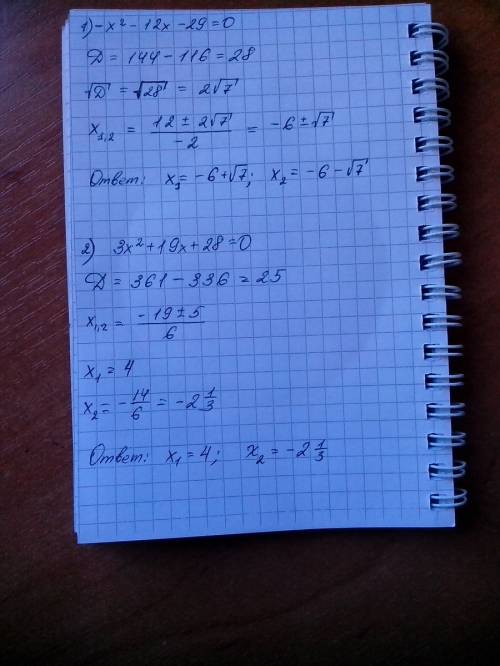 1) -x² - 12x - 29 = 0
D = 144 - 116 = 28
√D = √28 = 2√7
x₁,₂ = (12 ± 2√7) / -2 = -6 ± √7
Ответ: x₁ = -6 + √7; x₂ = -6 - √7
2) 3x² + 19x + 28 = 0
D = 361 - 336 = 25
x₁,₂ = (-19 ± 5) / 6
x₁ = 4
x₂ = -14/6 = -2 1/3
Ответ: x₁ = 4; x₂ = -2 1/3